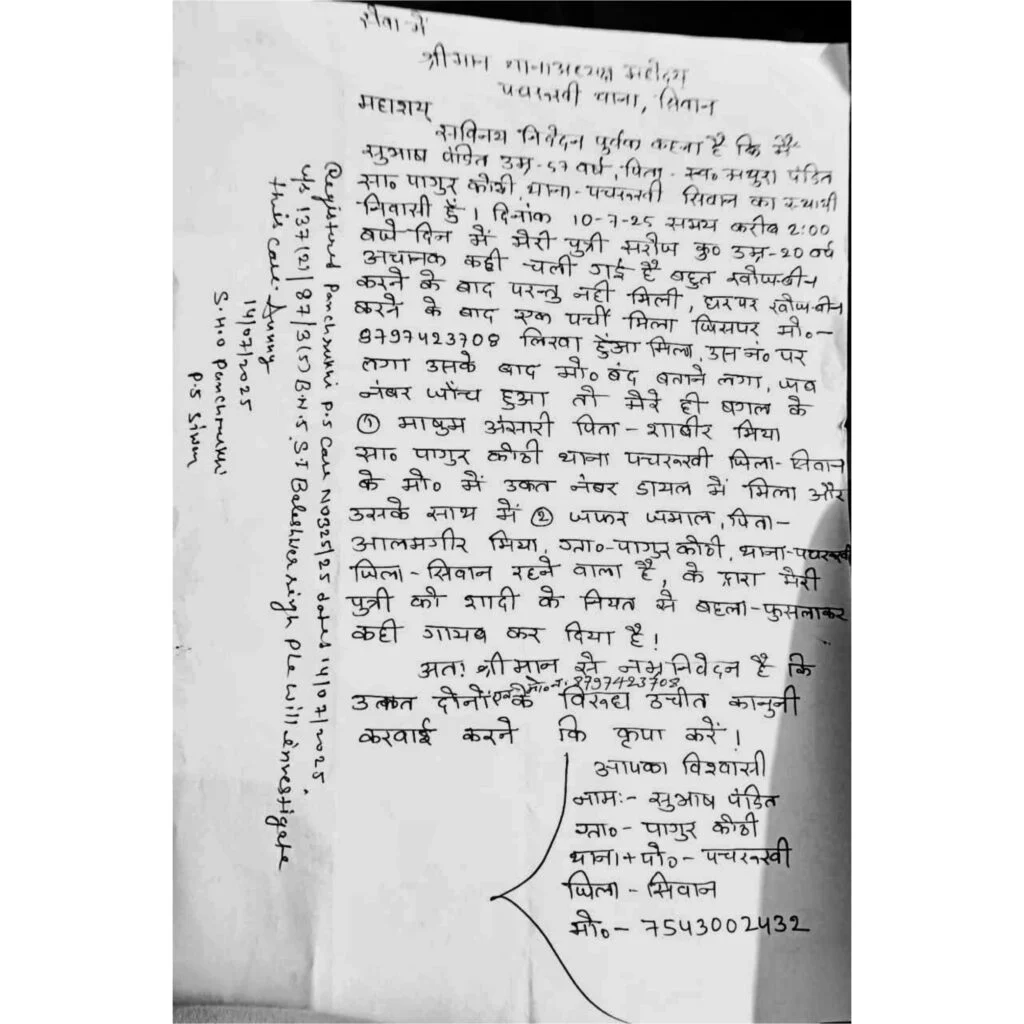 सेवा में
श्रीमान थानाअध्यक्ष महोदय
पचरूखी थाना, सिवान
महाशय
सविनय निवेदन पूर्वक कहना है कि मैं
सुभाष पंडित उम्र-57 वर्ष, पिता - स्व० मथुरा पंडित
सा० पागुर कोठी, थाना-पचरूखी सिवान का स्थायी
निवासी हुँ। दिनांक 10-7-25 समय करीब 2:00
बजे दिन में मेरी पुत्री सरोज कु० उम्र-20 वर्ष
अचानक कही चली गई है बहुत खोज-बीन
करने के बाद परन्तु नही मिली, घरपर खोज-बीन
करने के बाद एक पर्ची मिला जिसपर मो०-
8797423708 लिखा हुँआ मिला, उस नं० पर
लगा उसके बाद मो० बंद बताने लगा, जब
नंबर जाँच हुआ तो मेरे ही बगल के
① माषुम अंसारी पिता - शाबीर मिया
सा० पागुर कोठी थाना पचरूखी जिला-सिवान
के मो० में उक्त नंबर डायल में मिला और
उसके साथ में ② जफर जमाल, पिता-
आलमगीर मिया, ग्रा०-पागुर कोठी, थाना-पचरूखी
जिला-सिवान रहने वाला है, के द्वारा मेरी
पुत्री को शादी के नियत से बहला-फुसलाकर
कही गायब कर दिया है!
अतः श्रीमान से नम्र निवेदन है कि
उक्त दोनों एवं मो० नं: 8797423708 के विरूध उचीत कानुनी
करवाई करने कि कृपा करें!
आपका विश्वासी
नामः- सुभाष पंडित
ग्रा०- पागुर कोठी
थाना+पो०-पचरूखी
जिला - सिवान
मो०- 7543002432
Registered Panchrukhi P.S Case NO325/25 dated 14/07/2025.
u/s 137(2)/87/3(5) B.N.S. S.I Baleshwer singh Ple will investigate
this case.
14/07/2025
S.H.O Panchrukhi
P.S Siwan